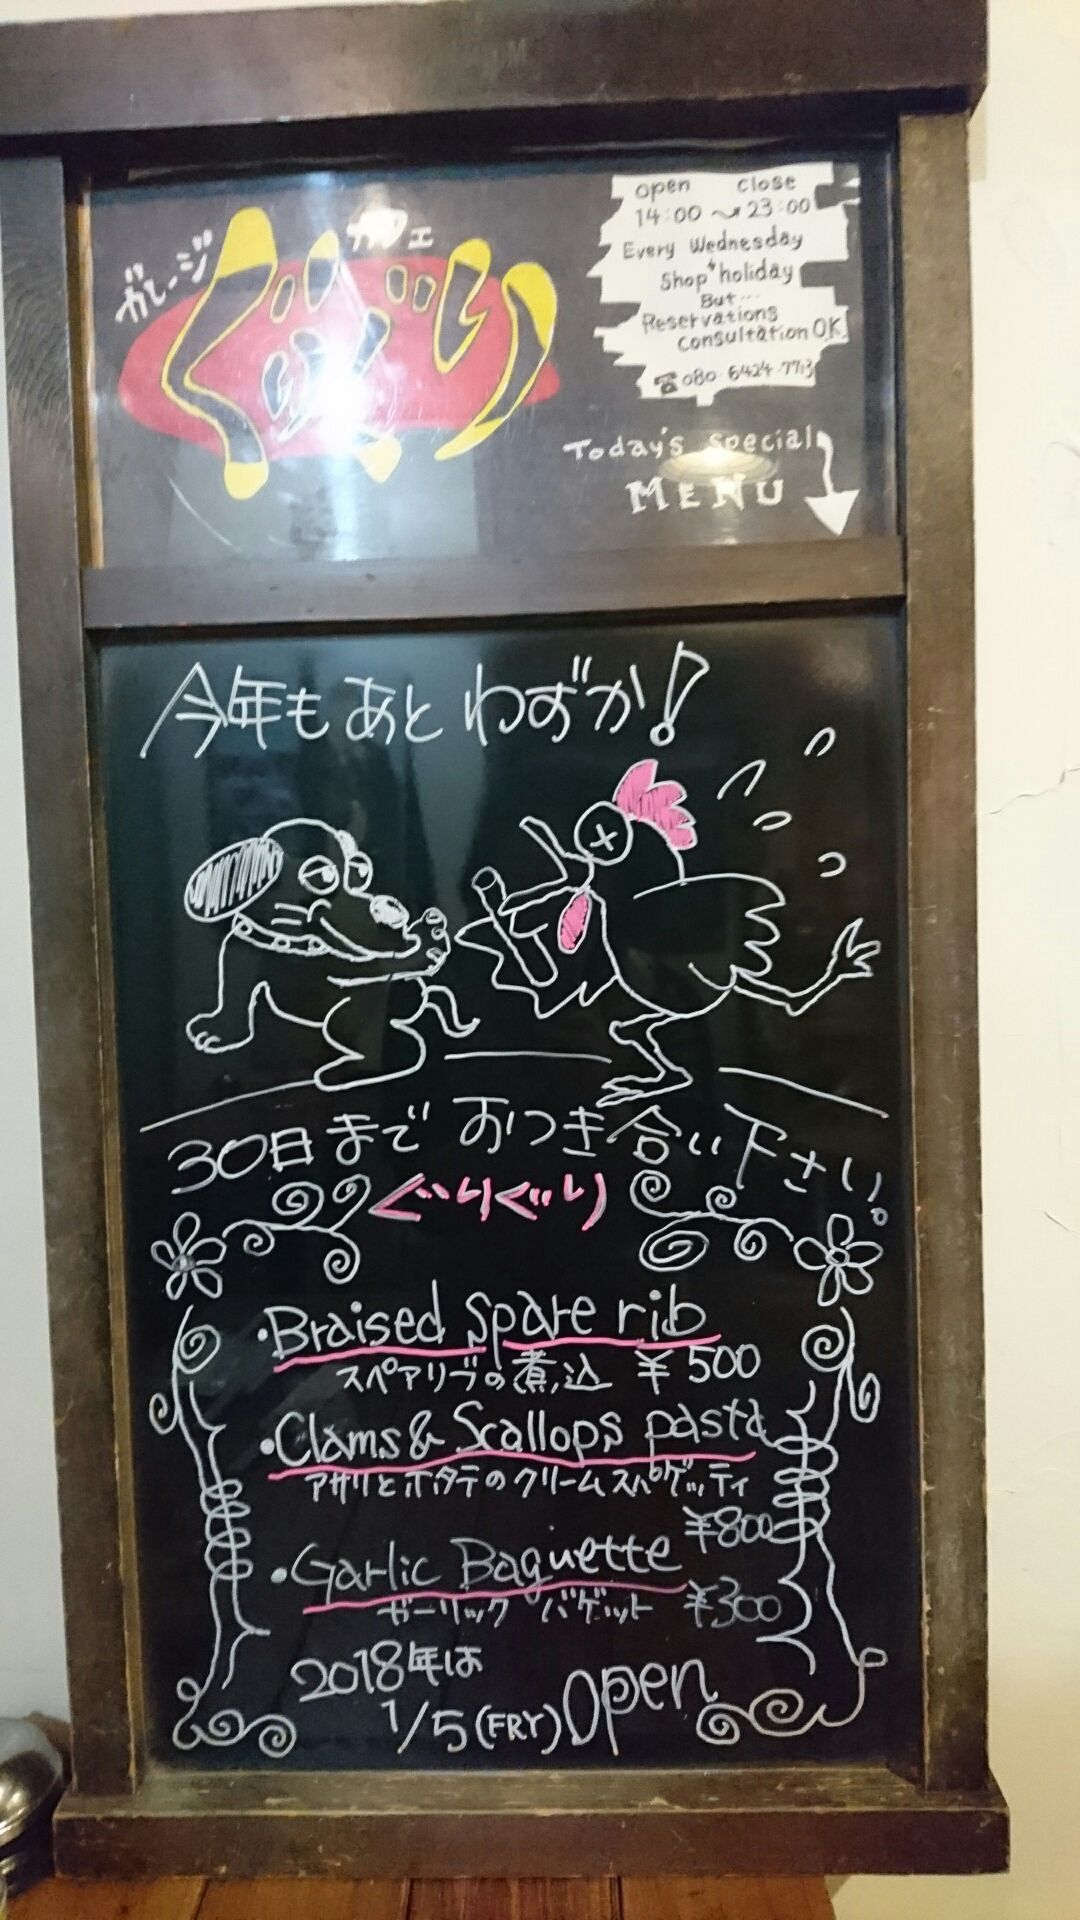 ガレージ
カフェ
ぐりぐり
open close
14:00〜23:00
Every Wednesday
Shop holiday
But…
Reservations
consultation O.K.
☎080-6424-7713
Today's special
MENU
今年もあとわずか!
30日までおつき合い下さい。
ぐりぐり
・Braised spare rib
スペアリブの煮込 ¥500
・Clams & Scallops pasta
アサリとホタテのクリームスパゲッティ
¥800
・Garlic Baguette
ガーリック バゲット ¥300
2018年は
1/5(FRY)Open